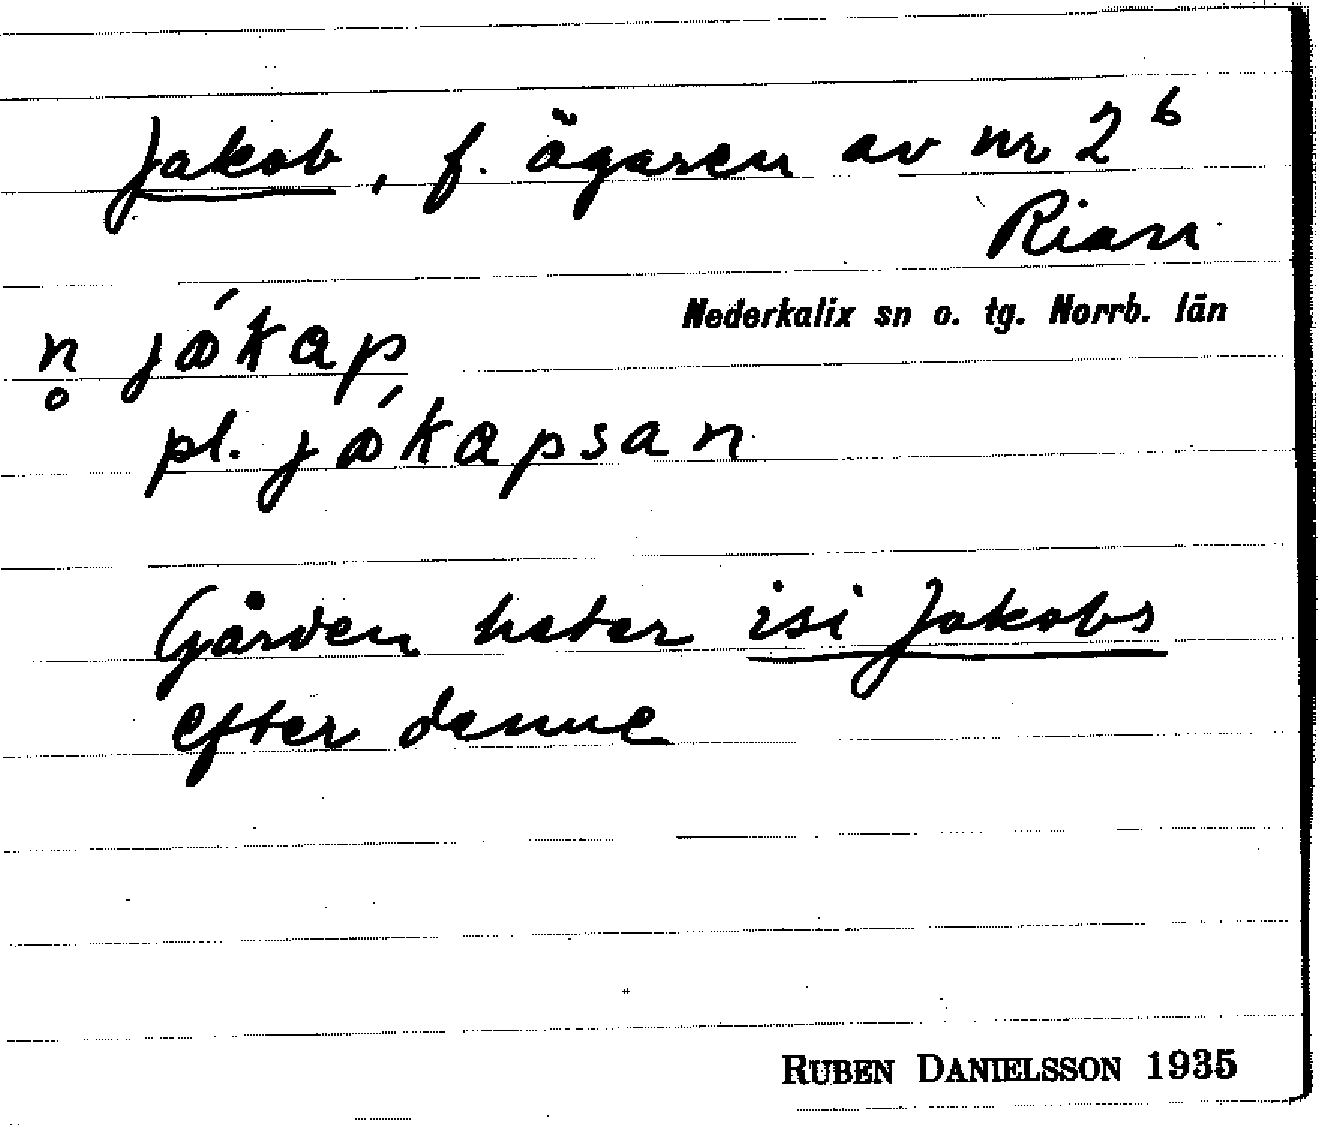 Jakob, f. ägaren av nr 2ᵇ
Rian
Nederkalix sn o. tg. Norrb. län
n̥ jákap
pl. jákapsan
Gården heter isi Jakobs
efter denne
RUBEN DANIELSSON 1935